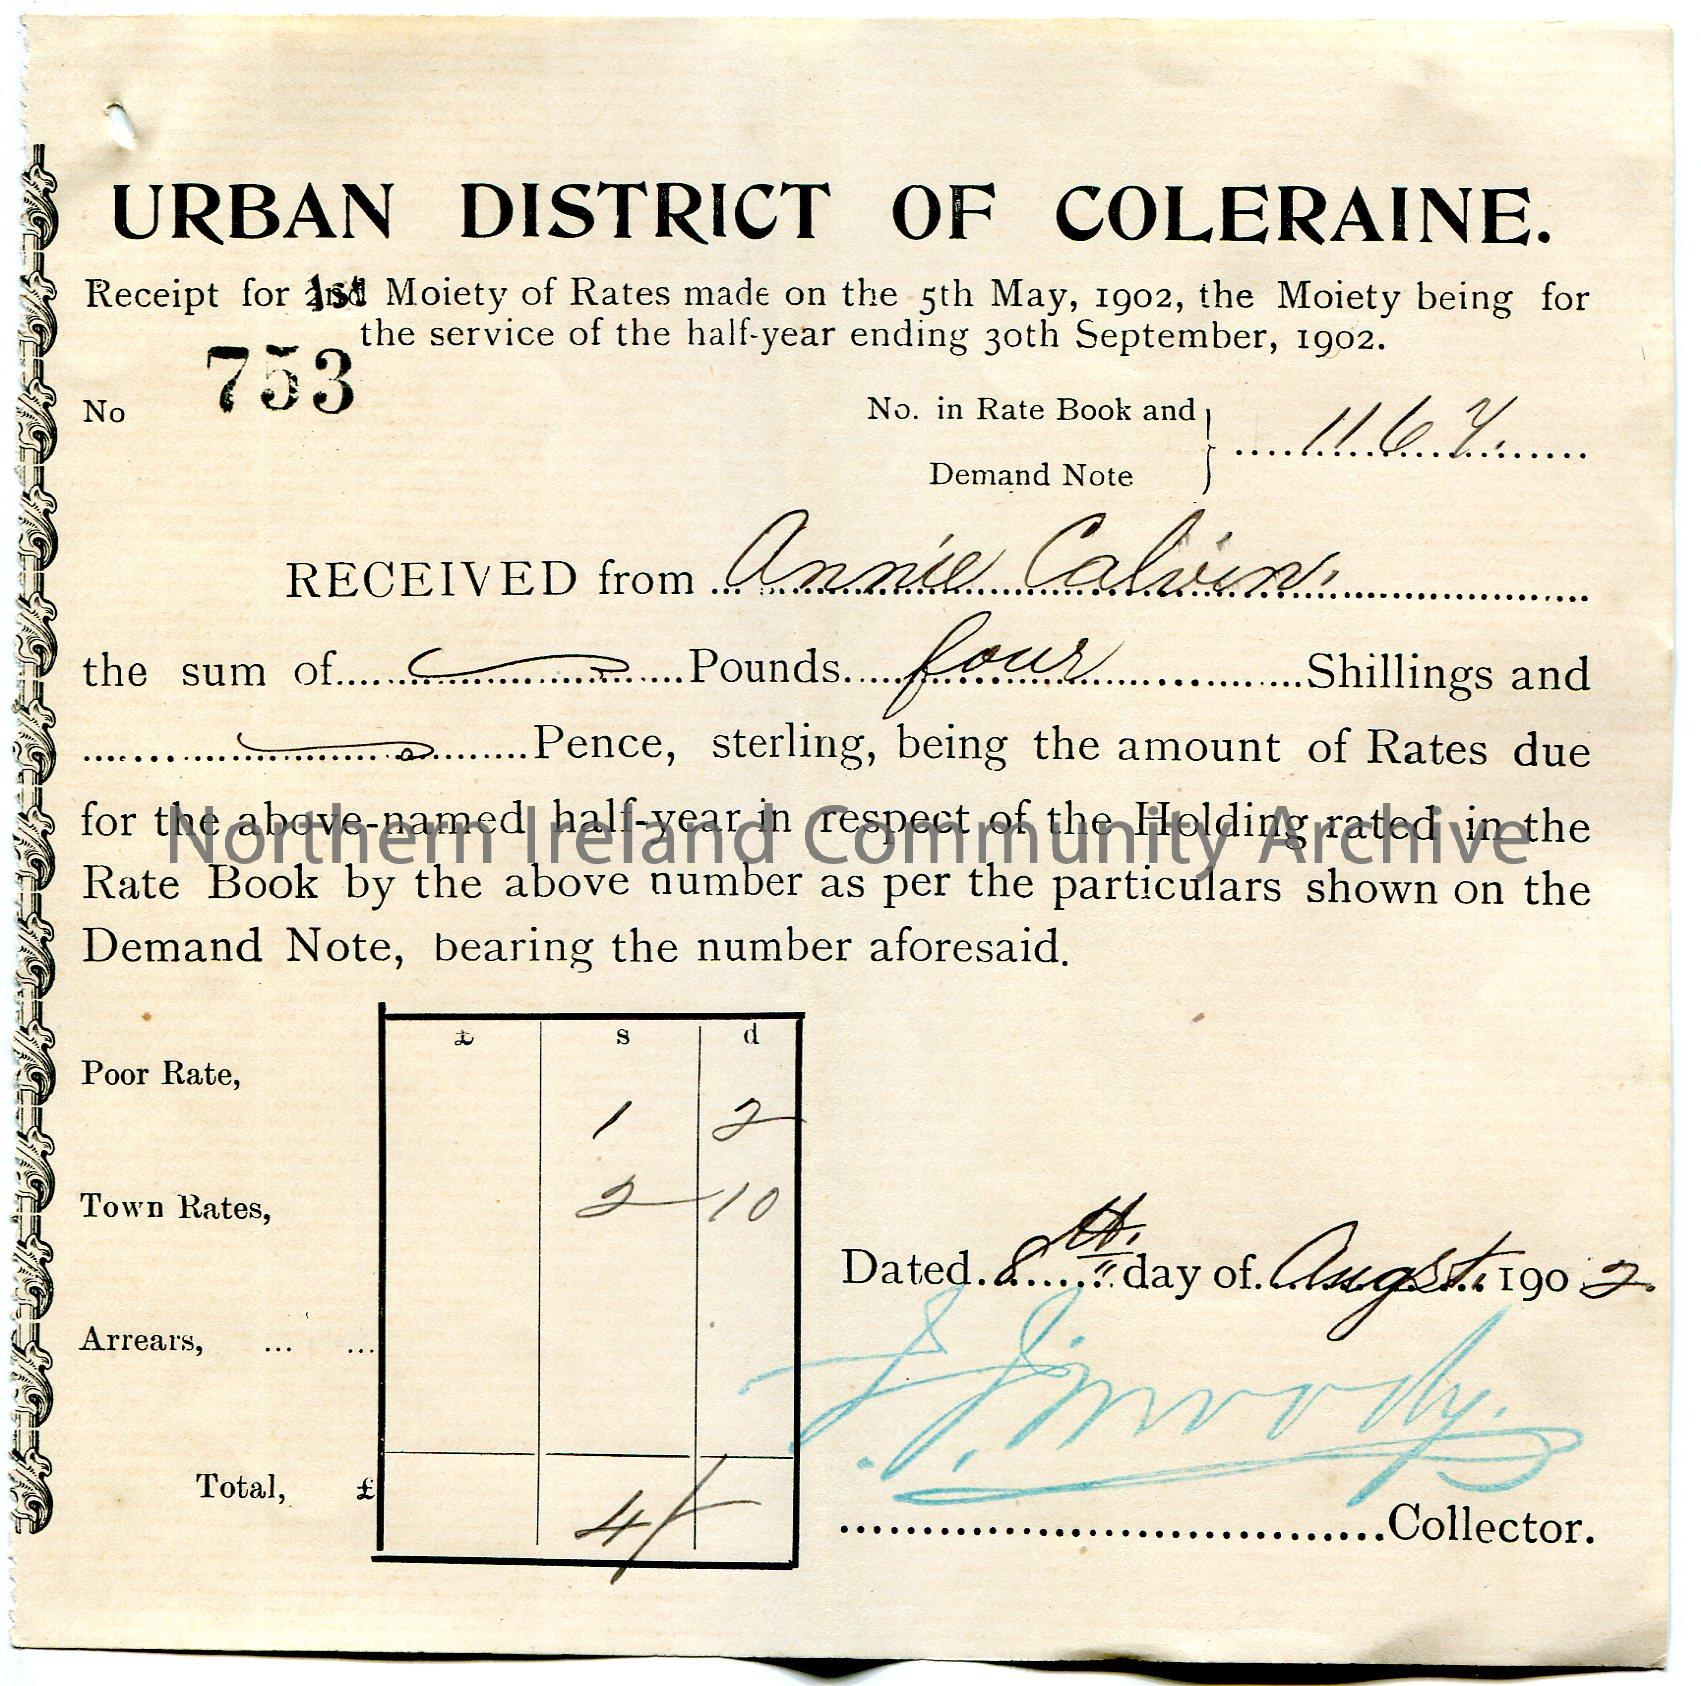 URBAN DISTRICT OF COLERAINE.
Receipt for 1st Moiety of Rates made on the 5th May, 1902, the Moiety being for
the service of the half-year ending 30th September, 1902.
No 753
No. in Rate Book and
Demand Note } 1167.
RECEIVED from Annie Calvin.
the sum of Pounds four Shillings and
Pence, sterling, being the amount of Rates due
for the above-named half-year in respect of the Holding rated in the
Northern Ireland Community Archive
Rate Book by the above number as per the particulars shown on the
Demand Note, bearing the number aforesaid.
£ s d
Poor Rate,
1 2
Town Rates, 2 10
Dated 8th day of Augst. 1902.
Arrears, ... ...
Total, £ 4/-
Collector.